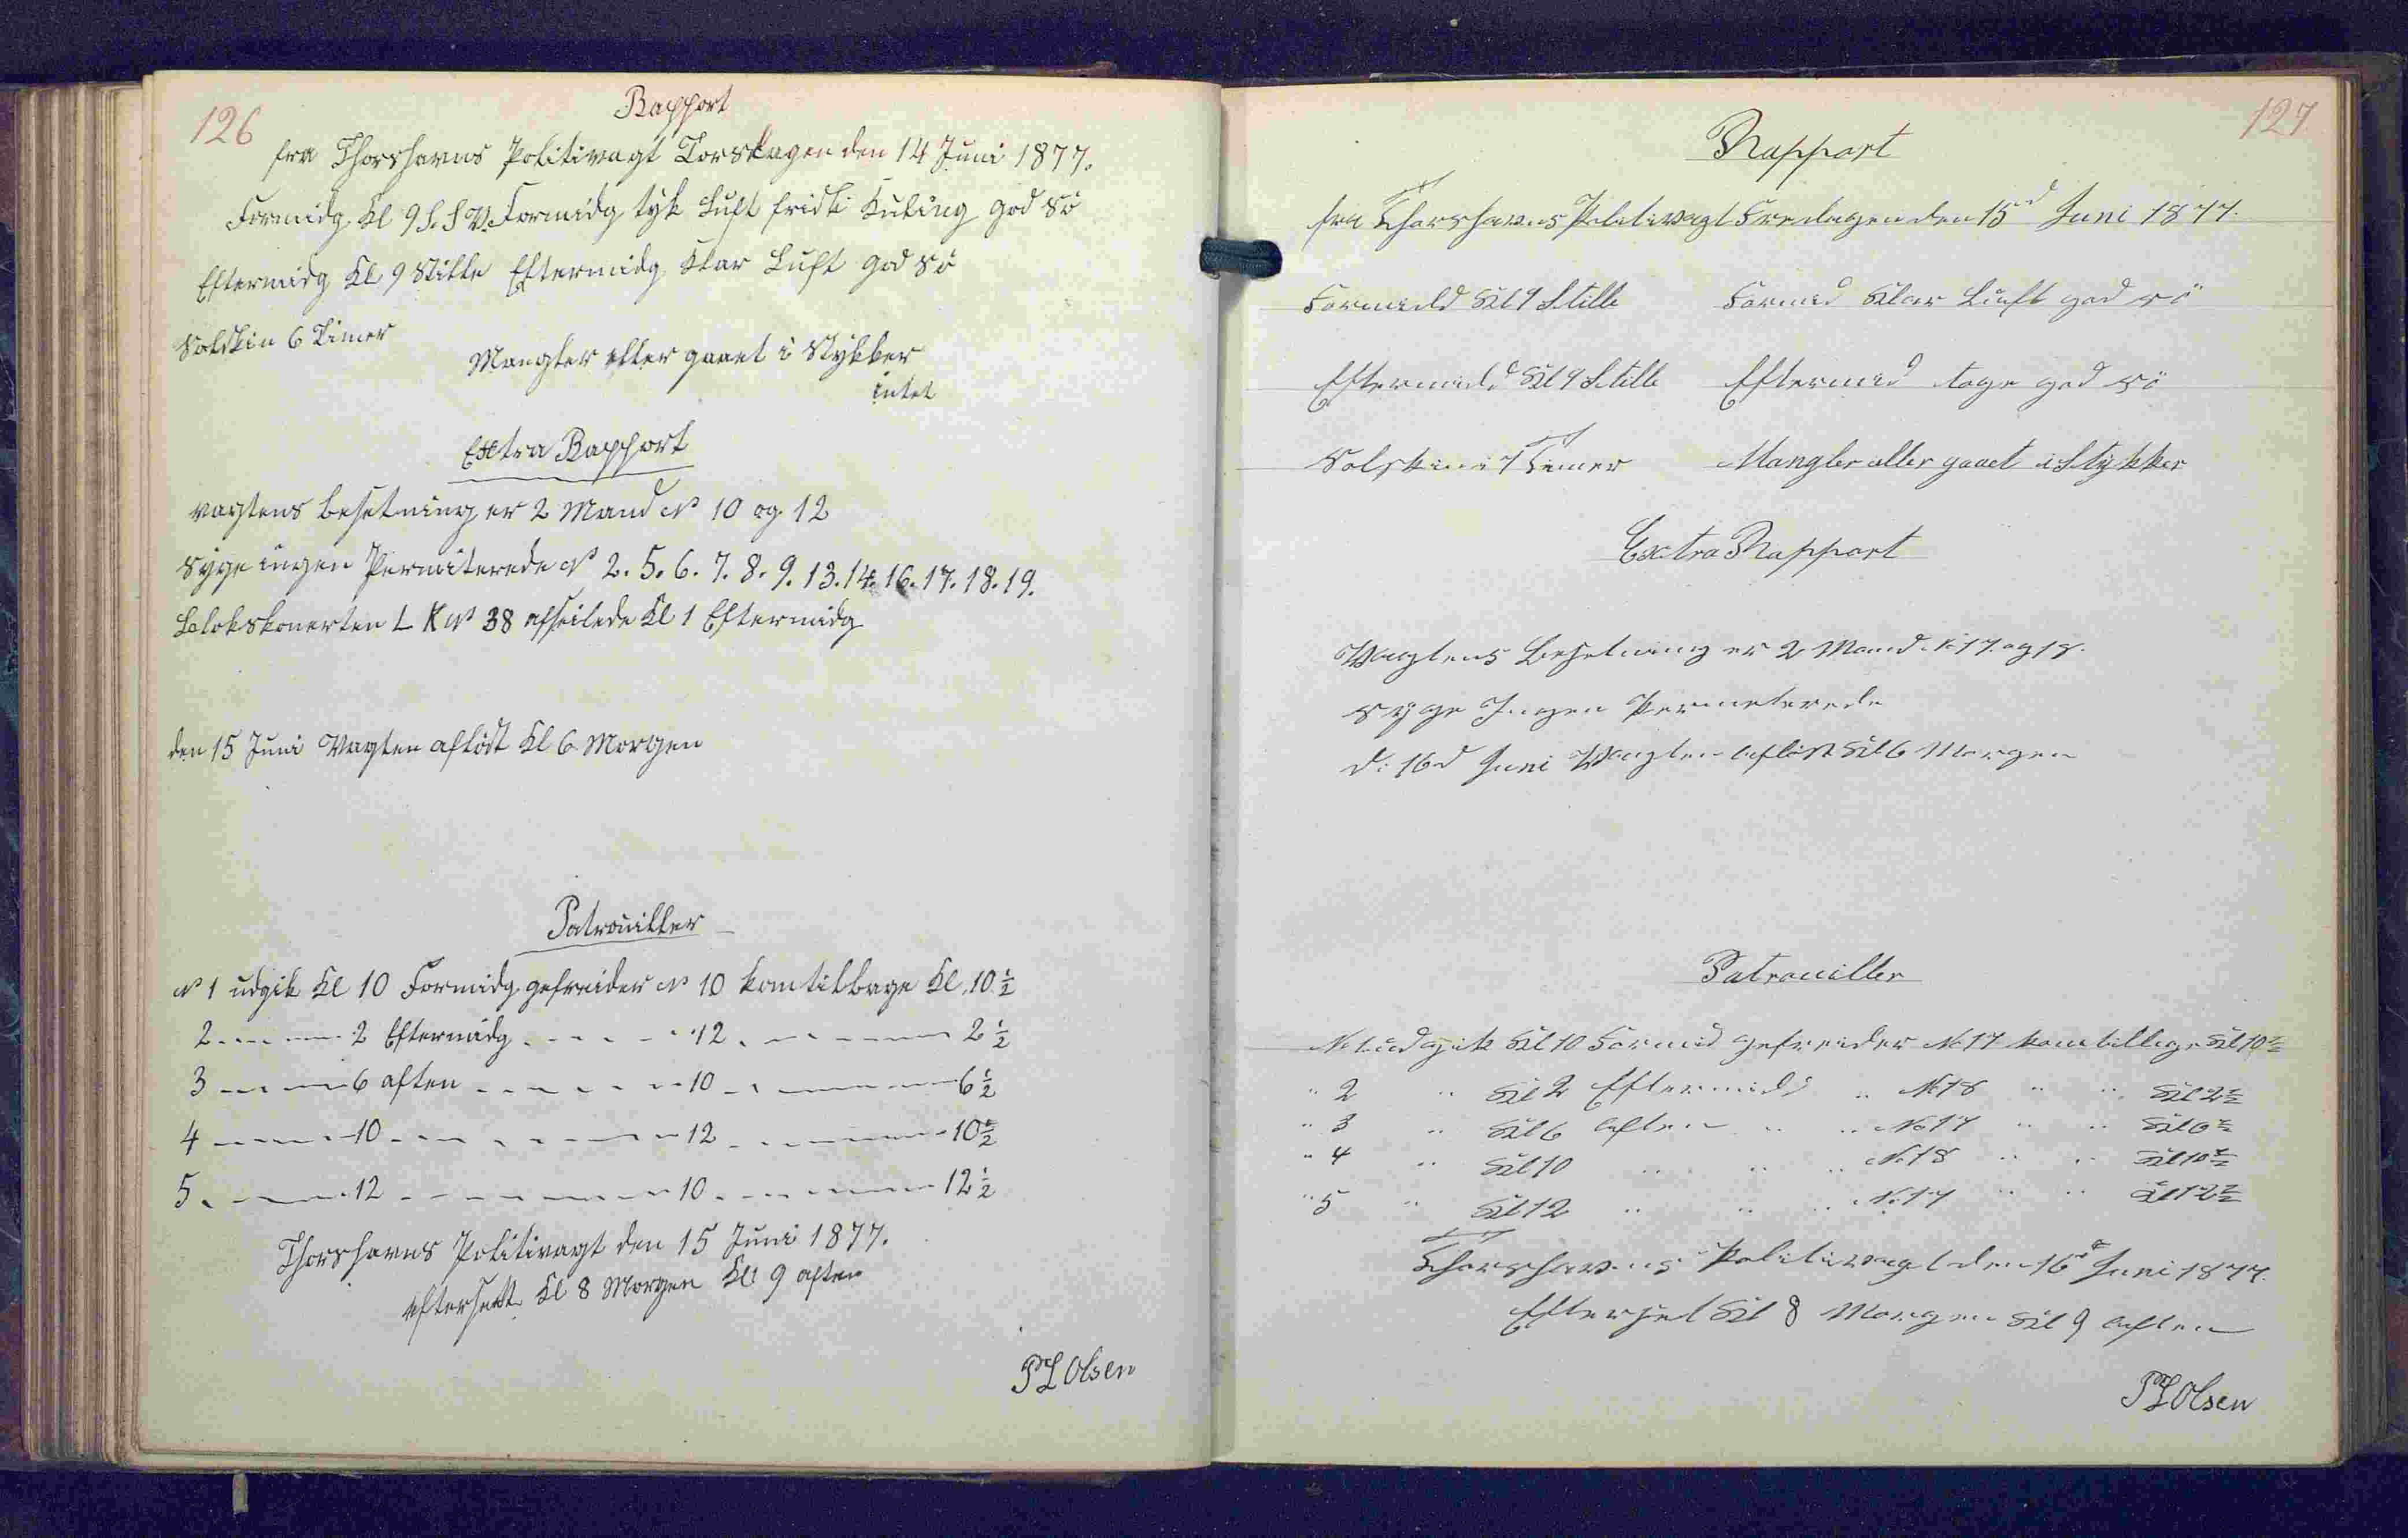 126
Rapport
fra Thorshavns Politivagt Torsdagen den 14 Juni 1877.
Formidg Kl 9 S.S.V. Formidg tyk Luft fridsk Kuling god Sö
Eftermidg Kl 9 Stille Eftermidg Klar Luft god Sö
Solskin 6 Timer
Mangler eller gaaet i Stykker
intet
Extra Rapport
vagtens besetning er 2 Mand No 10 og 12
Syge ingen Permiterede No 2. 5. 6. 7. 8. 9. 13. 14. 16. 17. 18. 19.
Slokskonerten L K No 38 afseilede Kl 1 Eftermidg
den 15 Juni Vagten aflöst Kl 6 Morgen
Patrouiller
No 1 udgik Kl 10 Formidg gefreider No 10 kom tilbage Kl. 10 1/2
2 - - - - 2 Eftermidg - - - - 12 - - - - 2 1/2
3 - - - 6 aften - - - - 10 - - - - 6 1/2
4 - - - - 10 - - - - - 12 - - - - 10 1/2
5 - - - - 12 - - - - - 10 - - - - 12 1/2
Thorshavns Politivagt den 15 Juni 1877.
efterseet Kl 8 Morgen Kl 9 aften
P L Olsen
127
Rapport
fra Thorshavns Politivagt Fredagen den 15d Juni 1877.
Formidd Kl 9 Stille Formid Klar Luft god sö
Eftermidd Kl 9 Stille Eftermid tage god sö
Solskin i 7 Timer Mangler eller gaaet i Stykker
Extra Rapport
Vagtens Besetning er 2 Mand No 17 og 18.
Syge Ingen Permeterede
d: 16d Juni Vagten aflöst Kl 6 Morgen
Patrouiller
No 1 udgik Kl 10 Formid gefreider No 17 kom tilbage Kl 10 1/2
" 2 " Kl 2 Eftermid " No 18 " " Kl 2 1/2
" 3 " Kl 6 aften " " No 17 " " Kl 6 1/2
" 4 " Kl 10 " " " No 18 " " Kl 10 1/2
" 5 " Kl 12 " " " No 17 " " Kl 12 1/2
Thorshavns Politivagt den 16d Juni 1877.
Efterset Kl 8 Morgen Kl 9 aften
P L Olsen